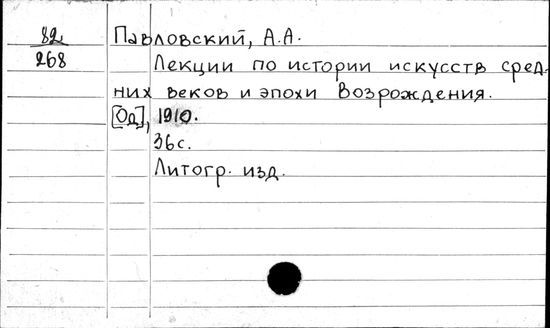 82
268
Павловский, А.А.
Лекции по истории искусств сред-
них веков и эпохи Возрождения.
[Од], 1910.
36с.
Литогр. изд.